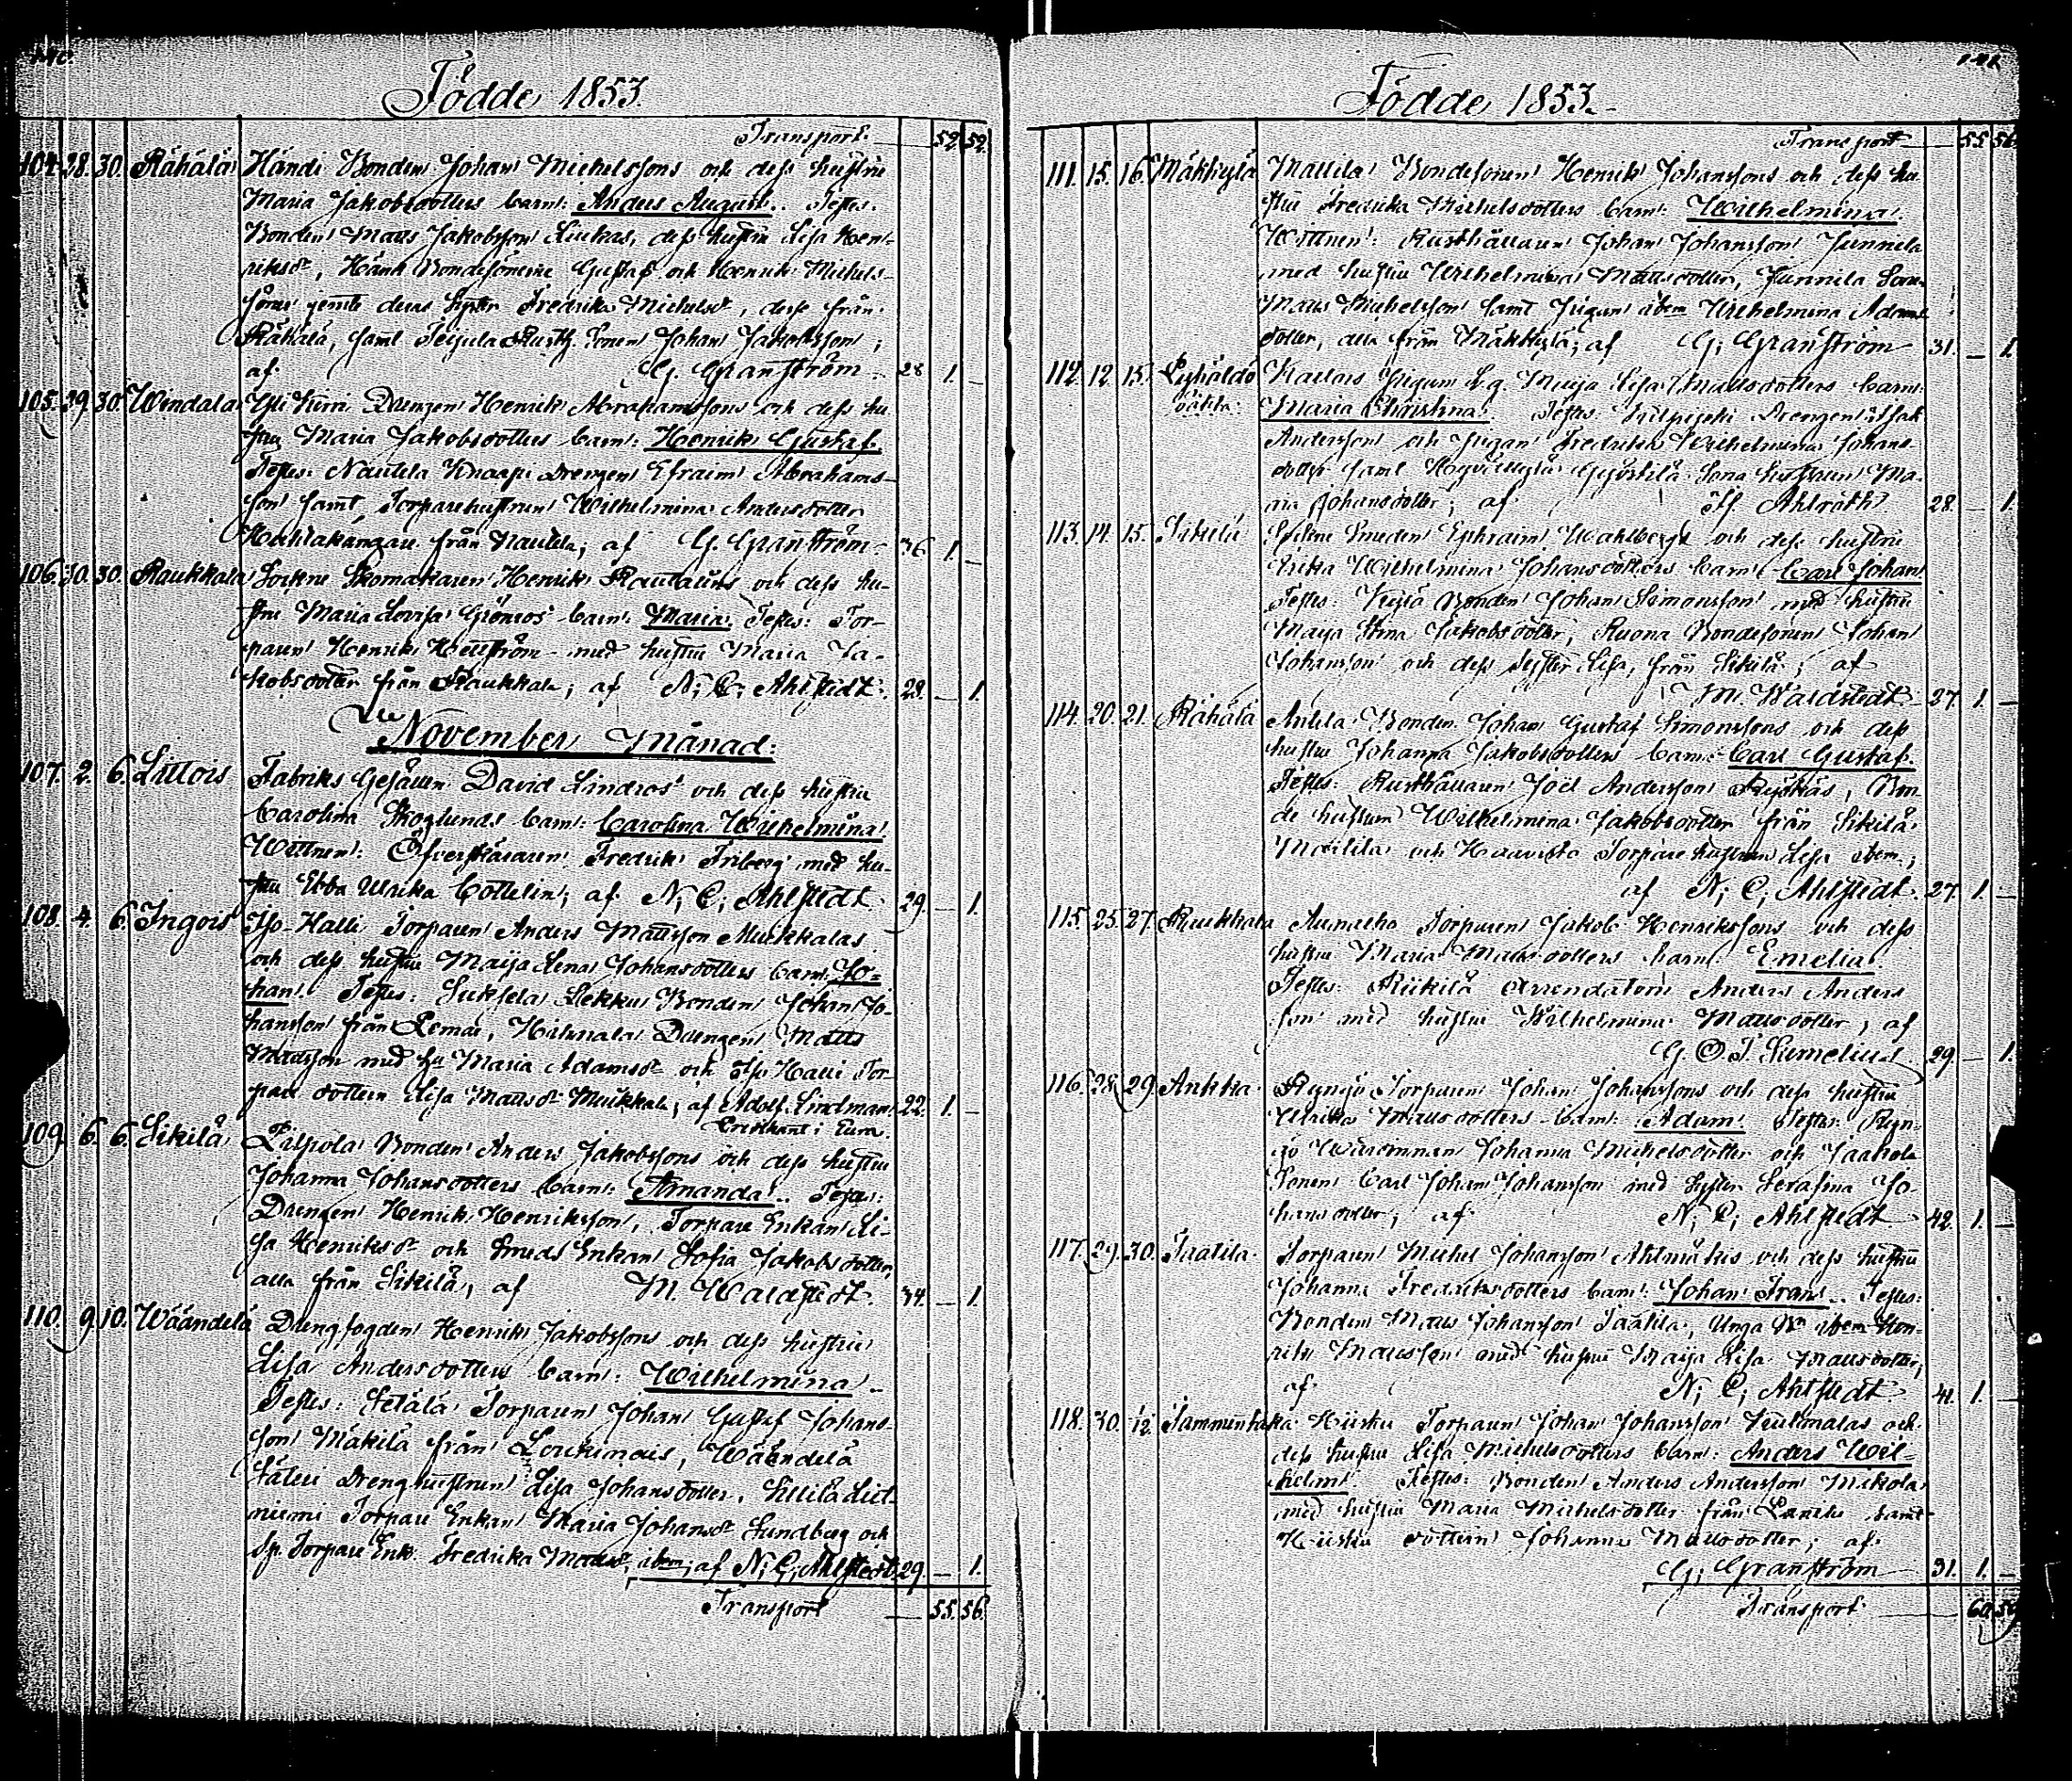 Födde 1853.
Transport 52. 52.
104. 28. 30. Rähälä Händi Bonden Johan Michelssons och dess hustru
Maria Jakobsdotters barn: Anders August. Testes:
Bonden Matts Jakobsson Liukas, dess hustru Lisa Hen-
riksdr, Bondesönerne Gustaf och Henrik Michels-
söner jemte deras Syster Fredrika Michelsdr, desse från
Rähälä, samt Sonen Johan Jakobsson;
af G. Granström 28 1. –
105. 29. 30. Windala Drengen Henrik Abrahamssons och dess hu-
stru Maria Jakobsdotters barn: Henrik Gustaf.
Testes: Nautela Knaapi Drengen Efraim Abrahams-
son samt Torparehustrun Wilhelmina Andersdotter
från Nautela; af G. Granström 36 1. –
106. 30. 30. Raukkala Sockne Skomakaren Henrik och dess hu-
stru Maria Lovisa Grönroos barn: Maria. Testes: Tor-
paren Henrik med hustru Maria Ja-
kobsdotter från Raukkala; af N. C. Ahlstedt. 28. – 1.
November Månad.
107. 2. 6. Littois Fabriks Gesällen David Lindros och dess hustru
Carolina Skoglunds barn: Carolina Wilhelmina.
Wittnen: Öfverskäraren Fredrik Friberg med hu-
stru Ebba Ulrika Cottelin; af N. C. Ahlstedt 29. – 1.
108. 4. 6. Ingois Iso-Halli Torparen Anders Mattsson Mukkalas
och dess hustru Maija Lena Johansdotters barn: Jo-
han. Testes: Bonden Johan Jo-
hansson från Lemo, Drengen Matts
Mattsson med hu Maria Adamsdr och Iso Halli Tor-
pare dottern Lisa Mattsdr Mukkala; af Adolf Lindman 22. 1. –
Predikant i Eura.
109. 6. 6. Sikilä Bonden Anders Jakobssons och dess hustru
Johanna Johansdotters barn: Amanda. Testes:
Drengen Henrik Henriksson, Torpare Enkan Li-
sa Henriksdr och Smeds Enkan Sofia Jakobsdotter,
alla från Sikilä; af M. Waldstedt. 34. – 1.
110. 9. 10. Wääntelä Drengfogden Henrik Jakobssons och dess hustru
Lisa Andersdotters barn: Wilhelmina.
Testes: Torparen Johan Gustaf Johans-
son Mäkilä från Loukinais, Wääntelä
Drenghustrun Lisa Johansdotter,
niemi Torpare Enkan Maria Johansdr Sundberg och
Torpare Enk. Fredrika Mattsdr, ibm; af N. C. Ahlstedt 29. – 1.
Transport 55. 56.
Födde 1853.
Transport 55. 56.
111. 15. 16. Mäkkylä Mattila Bondesonen Henrik Johanssons och dess hu-
stru Fredrika Michelsdotters barn: Wilhelmina.
Wittnen: Rusthållaren Johan Johansson Junnila
med hustru Wilhelmina Mattsdotter, Junnila Sonen
Matts Michelsson samt Pigan ibm Wilhelmina Adams-
dotter, alla från Mäkkylä; af G. Granström 31. – 1.
112. 12. 15. Pigans Lisa Mattsdotters barn:
Maria Christina. Testes: Drengen Isak
Andersson och Pigan Fredrika Wilhelmina Johans-
dotter samt Sona hustrun Ma-
ria Johansdotter; af Ahlroth 28. – 1.
113. 14. 15. Sikilä Sockne Smeden Ephraim Wahlbergs och dess hustru
Erika Wilhelmina Johansdotters barn: Carl Johan.
Testes: Bonden Johan Simonsson med hustru
Maja Stina Jakobsdotter, Ruona Bondesonen Johan
Johansson och dess syster Lisa, från Sikilä; af
M. Waldstedt. 27. 1. –
114. 20. 21. Rähälä Anttila Bonden Johan Gustaf Simonssons och dess
hustru Johanna Jakobsdotters barn: Carl Gustaf.
Testes: Rusthållaren Joël Andersson, Bon-
de hustrun Wilhelmina Jakobsdotter från Sikilä
Mattila och Haavisto Torpare hustrun Lisa ibm;
af N. C. Ahlstedt. 27. 1. –
115. 25. 27. Raukkala Torparen Jakob Henrikssons och dess
hustru Maria Mattsdotters barn: Emelia.
Testes: Arrendatorn Anders Anders-
son med hustru Wilhelmina Mattsdotter; af
G. O. T. Sumelius 29. – 1.
116. 28. 29. Ankka Torparen Johan Johanssons och dess hustru
Ulrika Mattsdotters barn: Adam. Testes:
Johanna Michelsdotter och Jaakola
Sonen Carl Johan Johansson med syster Serafina Jo-
hansdotter; af N. C. Ahlstedt 42. 1. –
117. 29. 30. Saatila Torparen Michel Johansson och dess hustru
Johanna Fredriksdotters barn: Johan Frans. Testes:
Bonden Matts Johansson Saatila, Unga Bn ibm Hen-
rik Mattsson med hustru Maija Lisa Mattsdotter;
af N. C. Ahlstedt 41. 1. –
118. 30. 12. Hiisku Torparen Johan Johansson och
dess hustru Lisa Michelsdotters barn: Anders Wil-
helm. Testes: Bonden Anders Andersson Mikola
med hustru Maria Michelsdotter från samt
Hiisku dottern Johanna Mattsdotter; af
G. Granström 31. 1. –
Transport 60. 59.